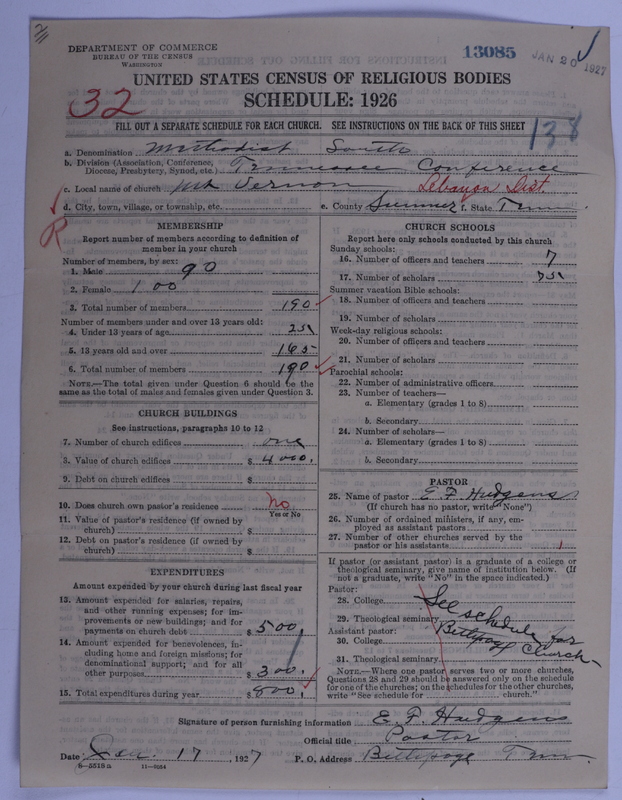 DEPARTMENT OF COMMERCE
BUREAU OF THE CENSUS
WASHINGTON
13085
JAN 20 1927
UNITED STATES CENSUS OF RELIGIOUS BODIES
SCHEDULE: 1926
32
FILL OUT A SEPARATE SCHEDULE FOR EACH CHURCH. SEE INSTRUCTIONS ON THE BACK OF THIS SHEET
138
a. Denomination Methodist South
b. Division (Association, Conference, Diocese, Presbytery, Synod, etc.) Tennessee Conference
c. Local name of church Mt. Vernon Lebanon Dist
d. City, town, village, or township, etc.
e. County Sumner f. State Tenn
R
MEMBERSHIP
Report number of members according to definition of
member in your church
Number of members, by sex:
1. Male 90
2. Female 100
3. Total number of members 190
Number of members under and over 13 years old:
4. Under 13 years of age 25
5. 13 years old and over 165
6. Total number of members 190
NOTE.—The total given under Question 6 should be the
same as the total of males and females given under Question 3.
CHURCH BUILDINGS
See instructions, paragraphs 10 to 12
7. Number of church edifices one
8. Value of church edifices $ 4000.
9. Debt on church edifices $
10. Does church own pastor's residence No
Yes or No
11. Value of pastor's residence (if owned by
church) $
12. Debt on pastor's residence (if owned by
church) $
EXPENDITURES
Amount expended by your church during last fiscal year
13. Amount expended for salaries, repairs,
and other running expenses; for im-
provements or new buildings; and for
payments on church debt $ 500
14. Amount expended for benevolences, in-
cluding home and foreign missions; for
denominational support; and for all
other purposes $ 300.
15. Total expenditures during year $ 800
CHURCH SCHOOLS
Report here only schools conducted by this church
Sunday schools:
16. Number of officers and teachers 7
17. Number of scholars 75
Summer vacation Bible schools:
18. Number of officers and teachers
19. Number of scholars
Week-day religious schools:
20. Number of officers and teachers
21. Number of scholars
Parochial schools:
22. Number of administrative officers
23. Number of teachers—
a. Elementary (grades 1 to 8)
b. Secondary
24. Number of scholars—
a. Elementary (grades 1 to 8)
b. Secondary
PASTOR
25. Name of pastor E F Hudgens
(If church has no pastor, write "None")
26. Number of ordained ministers, if any, em-
ployed as assistant pastors
27. Number of other churches served by the
pastor or his assistants 1
If pastor (or assistant pastor) is a graduate of a college or
theological seminary, give name of institution below. (If
not a graduate, write "No" in the space indicated.)
Pastor:
28. College
29. Theological seminary See schedule for
Assistant pastor: Bethpage Church
30. College
31. Theological seminary
NOTE.—Where one pastor serves two or more churches,
Questions 28 and 29 should be answered only on the schedule
for one of the churches; on the schedules for the other churches,
write "See schedule for ........ church."
Signature of person furnishing information E. F. Hudgens
Official title Pastor
Date Jan 17, 1927 P. O. Address Bethpage Tenn.
8—5518a 11—9034